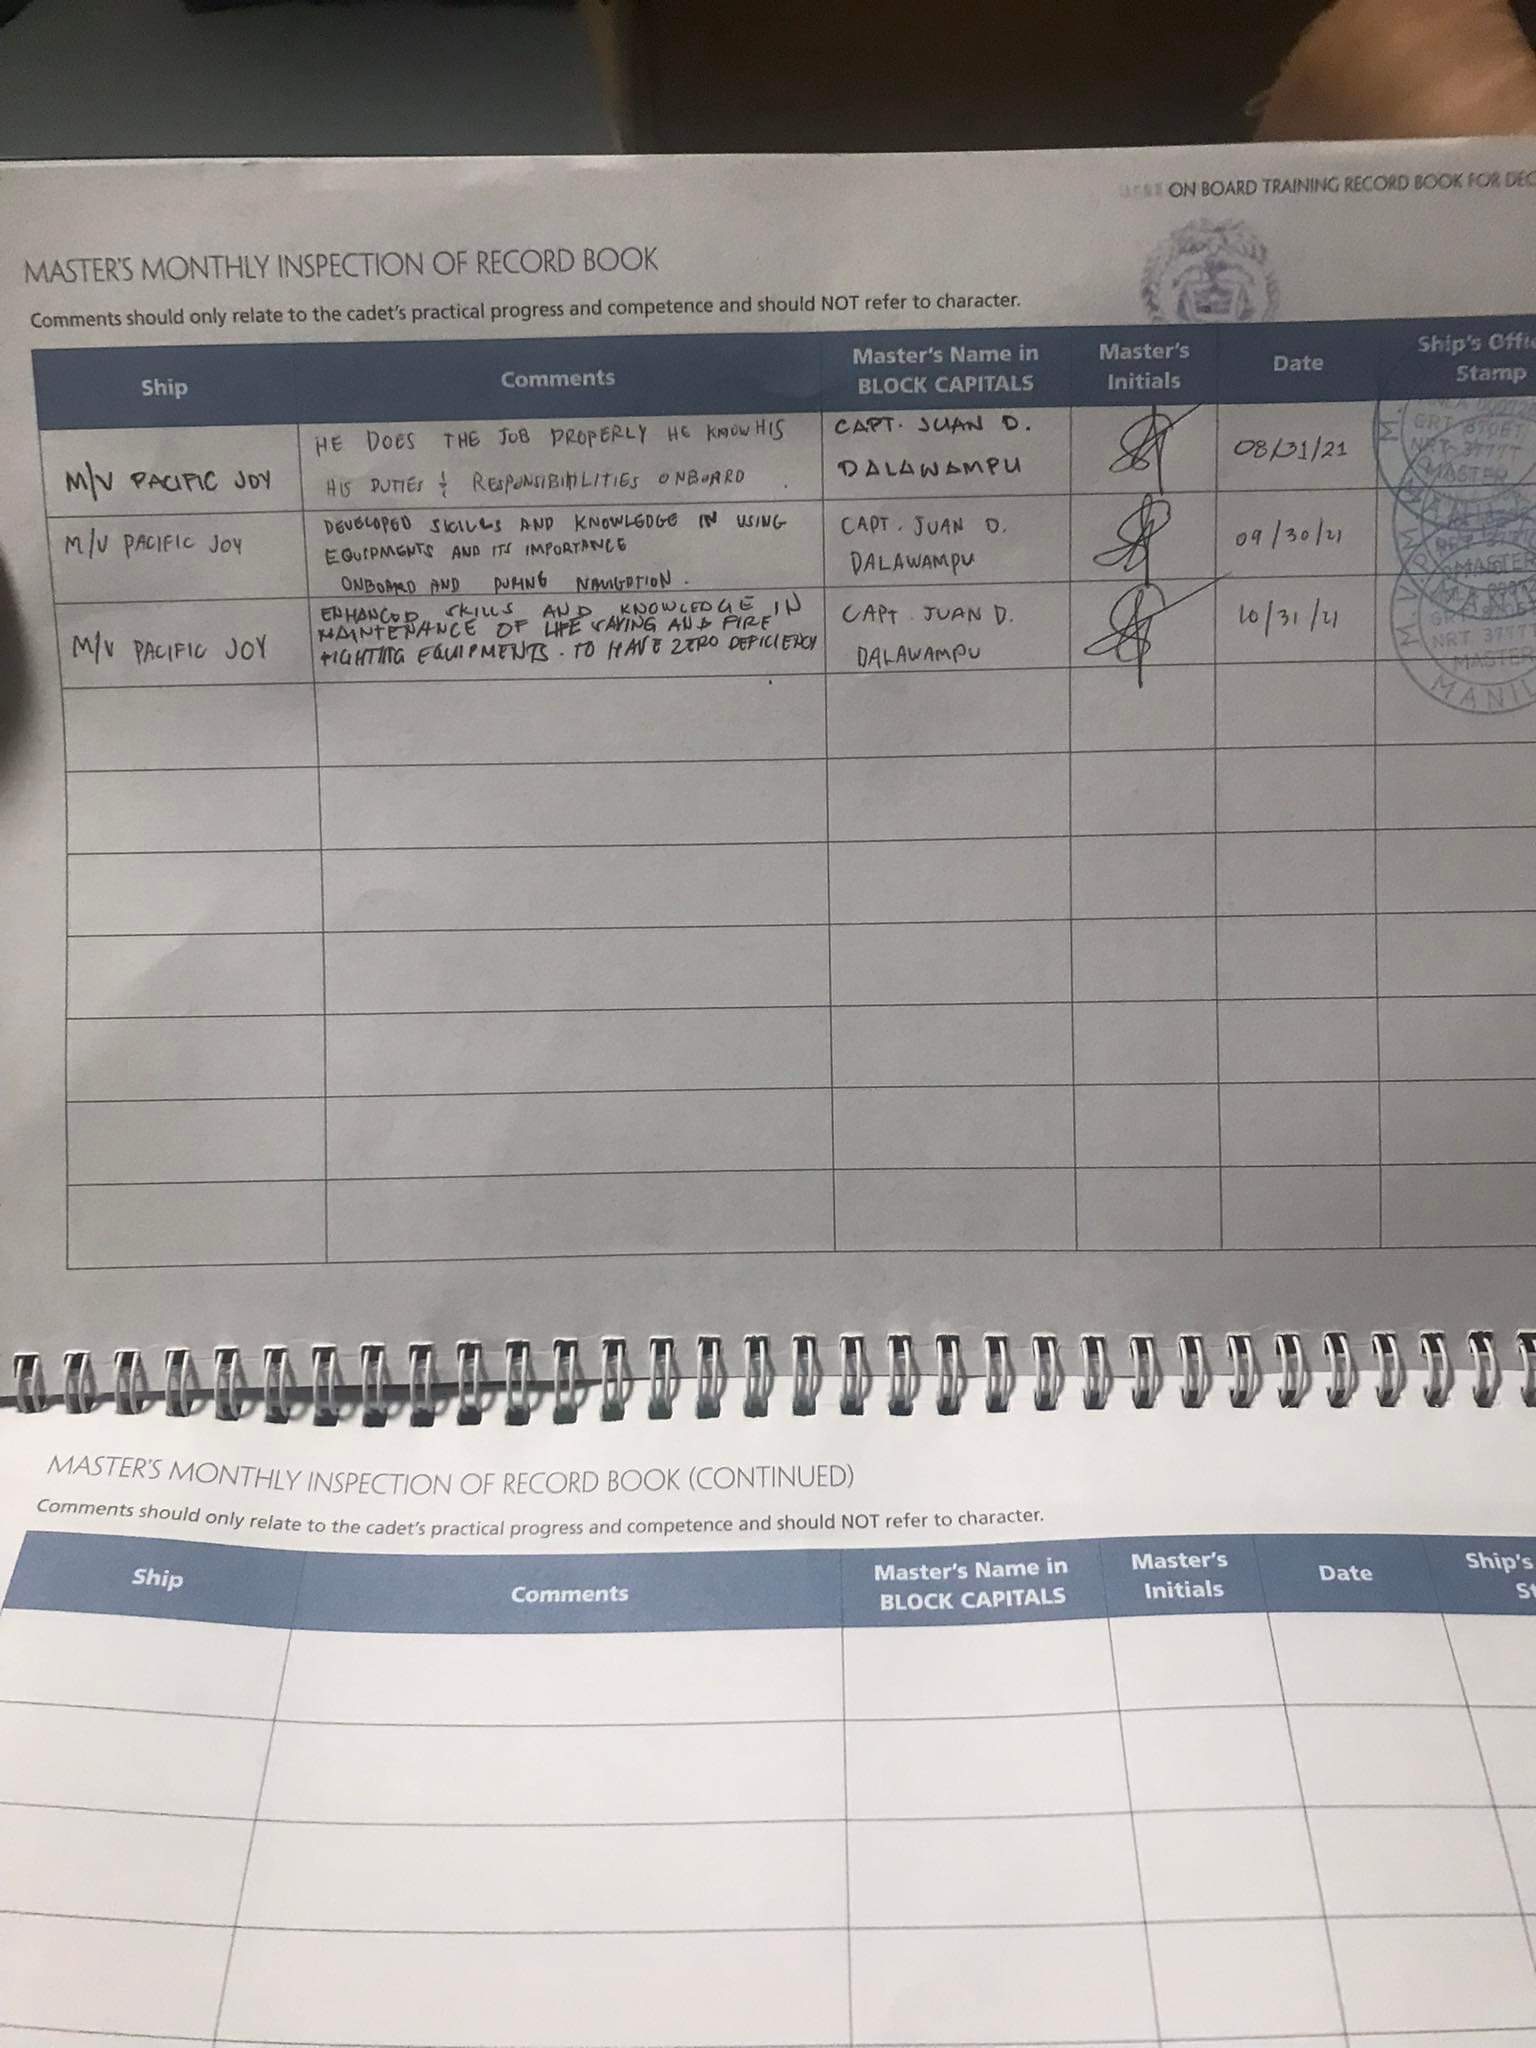 ON BOARD TRAINING RECORD BOOK FOR DEC
MASTER'S MONTHLY INSPECTION OF RECORD BOOK
Comments should only relate to the cadet's practical progress and competence and should NOT refer to character.
Ship
Comments
Master's Name in
BLOCK CAPITALS
Master's
Initials
Date
Ship's Offi
Stamp
M/V PACIFIC JOY
HE DOES THE JOB PROPERLY HE KNOW HIS
HIS DUTIES & RESPONSIBILITIES ONBOARD.
CAPT. JUAN D.
DALAWAMPU
08/31/21
M/V PACIFIC JOY
DEVELOPED SKILLS AND KNOWLEDGE IN USING
EQUIPMENTS AND ITS IMPORTANCE
ONBOARD AND DURING NAVIGATION.
CAPT. JUAN D.
DALAWAMPU
09/30/21
M/V PACIFIC JOY
ENHANCED SKILLS AND KNOWLEDGE IN
MAINTENANCE OF LIFE SAVING AND FIRE
FIGHTING EQUIPMENTS. TO HAVE ZERO DEFICIENCY
CAPT. JUAN D.
DALAWAMPU
10/31/21
MASTER
MASTER
NRT 3777
MASTER
MANIL
MASTER'S MONTHLY INSPECTION OF RECORD BOOK (CONTINUED)
Comments should only relate to the cadet's practical progress and competence and should NOT refer to character.
Ship
Comments
Master's Name in
BLOCK CAPITALS
Master's
Initials
Date
Ship's
St